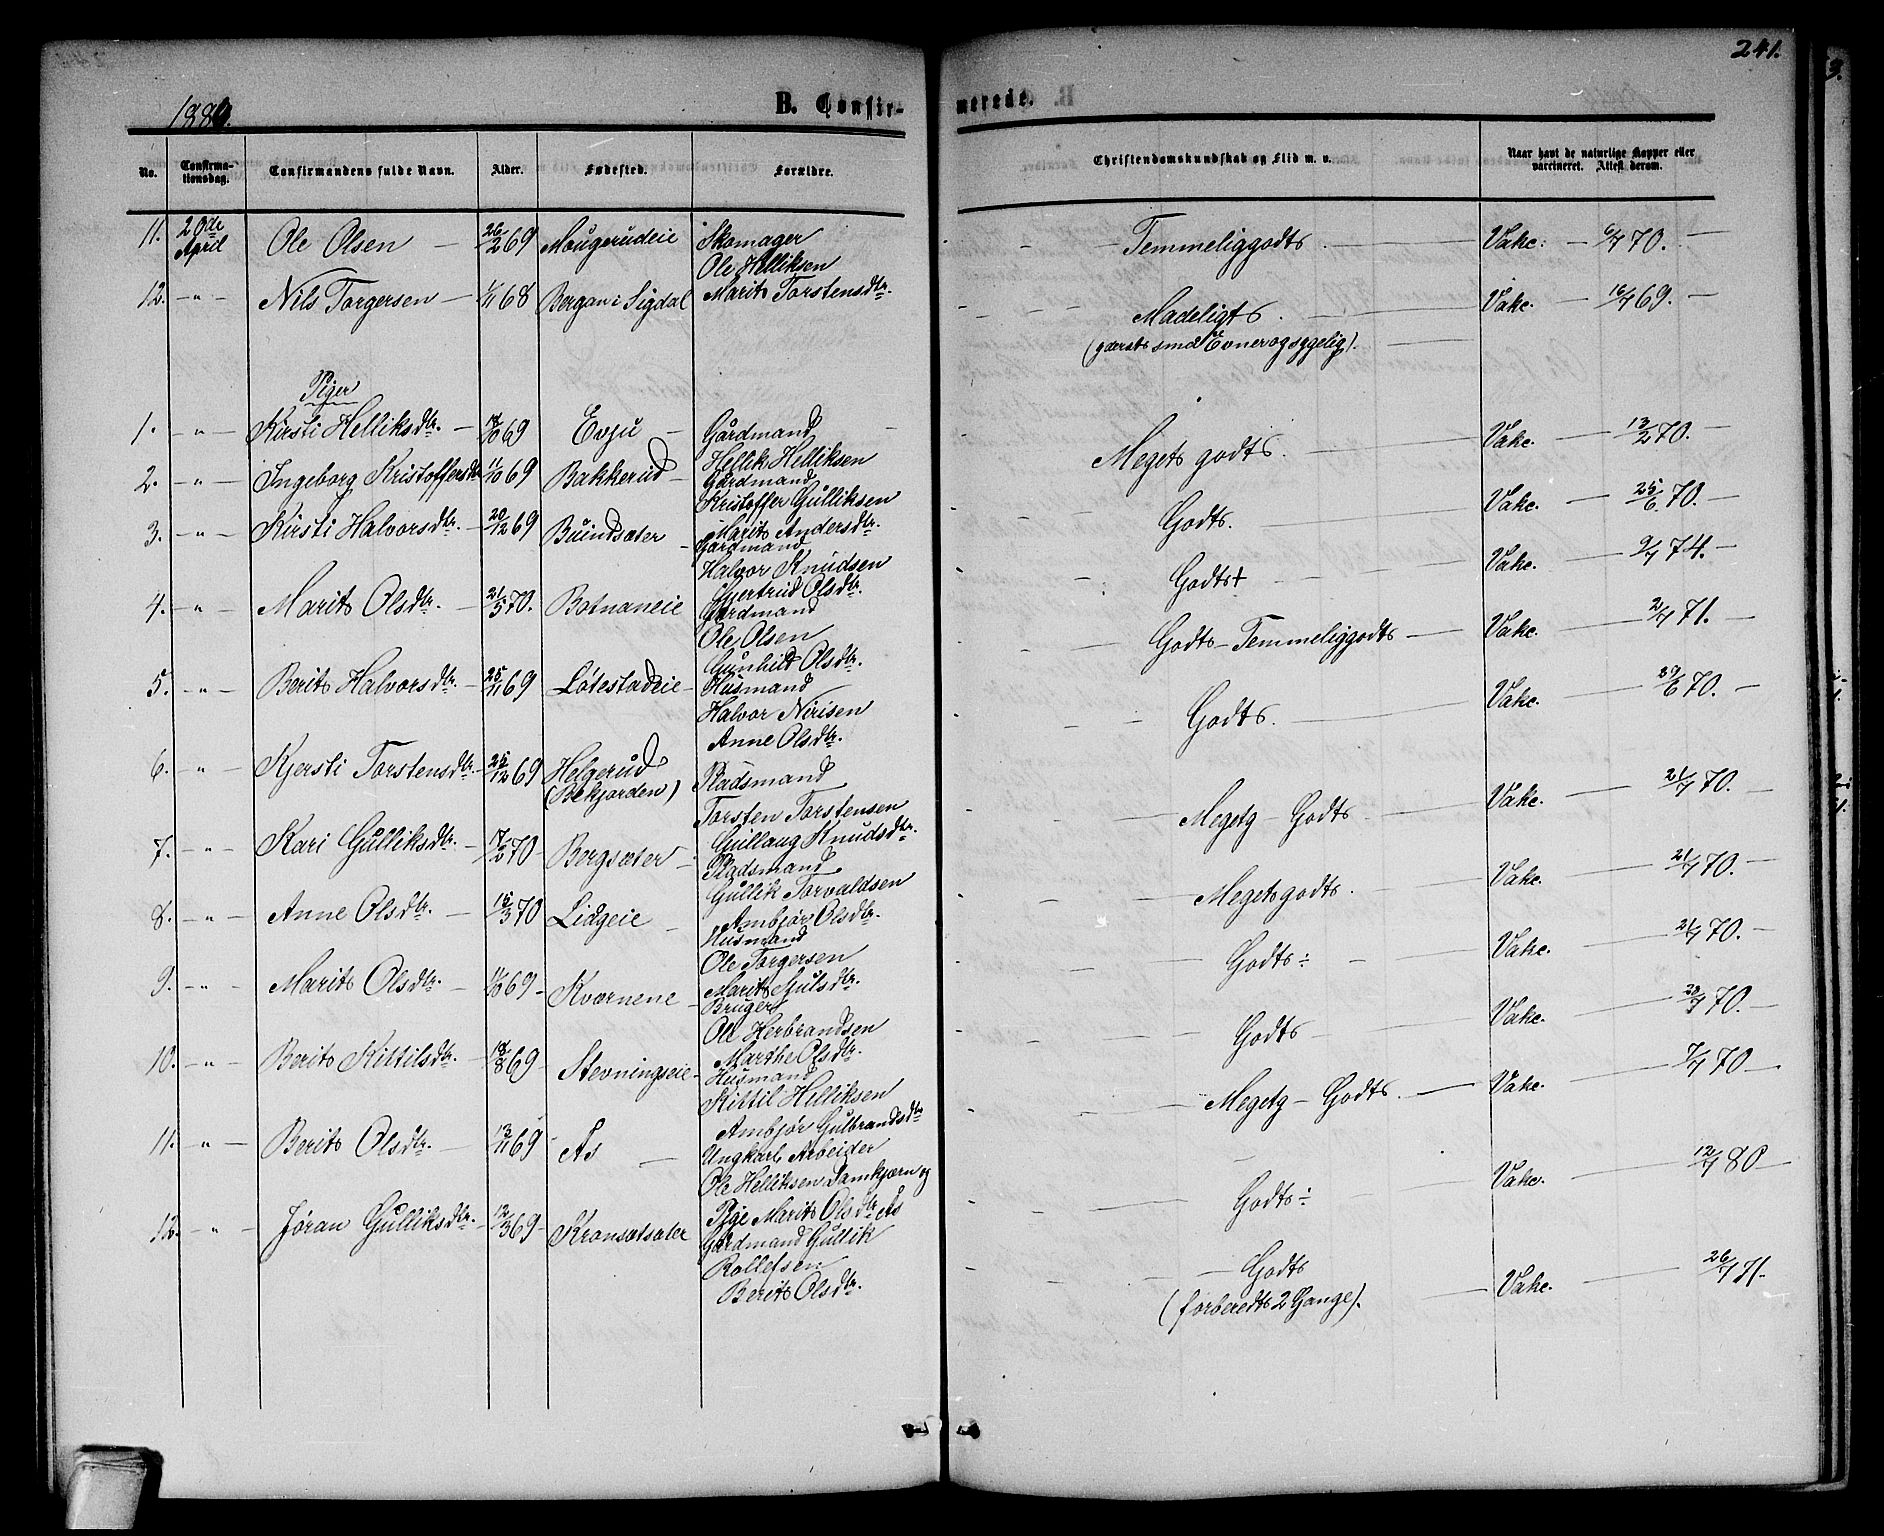 241.
1884.
B. Confir-
merede.
No.
Confirma-
tionsdag.
Confirmandens fulde Navn.
Alder.
Fødested.
Forældre.
Christendomskundskab og Flid m. v.
Naar havt de naturlige Kopper eller
vaccineret. Attest derom.
11. 20de April Ole Olsen — 26/2 69 Mougerudeie Skomager
Ole Helliksen
Marit Torstensdtr.
Temmeliggodt Vakc: — 6/7 70. —
12. — „ — Nils Torgersen — 1/11 68 Bergan i Sigdal
Madeligt. Vakc. 16/7 69. —
(yderst smaa Evner og sygelig).
Piger
1. — „ — Kirsti Helliksdtr. — 18/10 69 Evju — Gårdmand
Hellik Helliksen
Meget godt. Vakc. — 13/2 70. —
2. — „ — Ingeborg Kristoffersdtr 11/10 69 Bakkerud — Gårdmand
Kristoffer Gulliksen
Marit Andersdtr.
Godt. Vakc. — 25/6 70. —
3. — „ — Kirsti Halvorsdtr. — 20/12 69 Buindsæter — Gårdmand
Halvor Knudsen
Gjertrud Olsdtr.
Godt+ Vakc. 9/7 74. —
4. — „ — Marit Olsdtr. — 21/5 70. Botnaneie Gårdmand
Ole Olsen
Gunhild Olsdtr.
Godt — Temmeliggodt — Vakc. 2/7 71. —
5. — „ — Berit Halvorsdtr. — 25/11 69 Løtestadeie — Husmand
Halvor Nirisen
Anne Olsdtr.
Godt. Vakc. 29/6 70. —
6. — „ — Kjersti Torstensdtr. 25/12 69 Helgerud
(Bekjorden)
Pladsmand
Torsten Torstensen
Gullaug Knudsdtr.
Megetg — Godt. Vakc. 21/7 70. —
7. — „ — Kari Gulliksdtr. — 17/2 70 — Bergsæter — Pladsmand
Gullik Torvaldsen
Ambjør Olsdtr.
Megetgodt. Vakc. 21/7 70. —
8. — „ — Anne Olsdtr. — 15/3 70 Lidgeie — Husmand
Ole Torgersen
Marit Sjulsdtr.
Godt ÷ — Vakc. 21/7 70. —
9. — „ — Marit Olsdtr. — 69 — Kværnene — Bruger
Ole Herbrandsen
Marthe Olsdtr.
Godt — Vakc. 70. —
10. — „ — Berit Kittilsdtr. 18/8 69 — Stevningseie — Husmand
Kittil Helliksen
Ambjør Gulbrandsdtr
Megetg — Godt. — Vakc. 7/7 70 —
11. — „ — Berit Olsdtr. — 13/11 69 Ås — Ungkarl Arbeider
Ole Helliksen Damkjærn og
Pige Marit Olsdtr Ås
Godt ÷ Vakc. 12/7 80 —
12. — „ — Jøran Gulliksdtr. — 12/3 69 — Kronsætsæter Gårdmand Gullik
Rollefsen
Berit Olsdtr.
— Godt — Vakc. 26/7 71.
(forberedt 2 Gange).